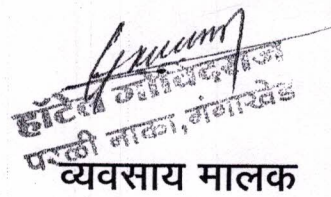 हॉटेल गोविंदराज
परळी नाका, गंगाखेड
व्यवसाय मालक